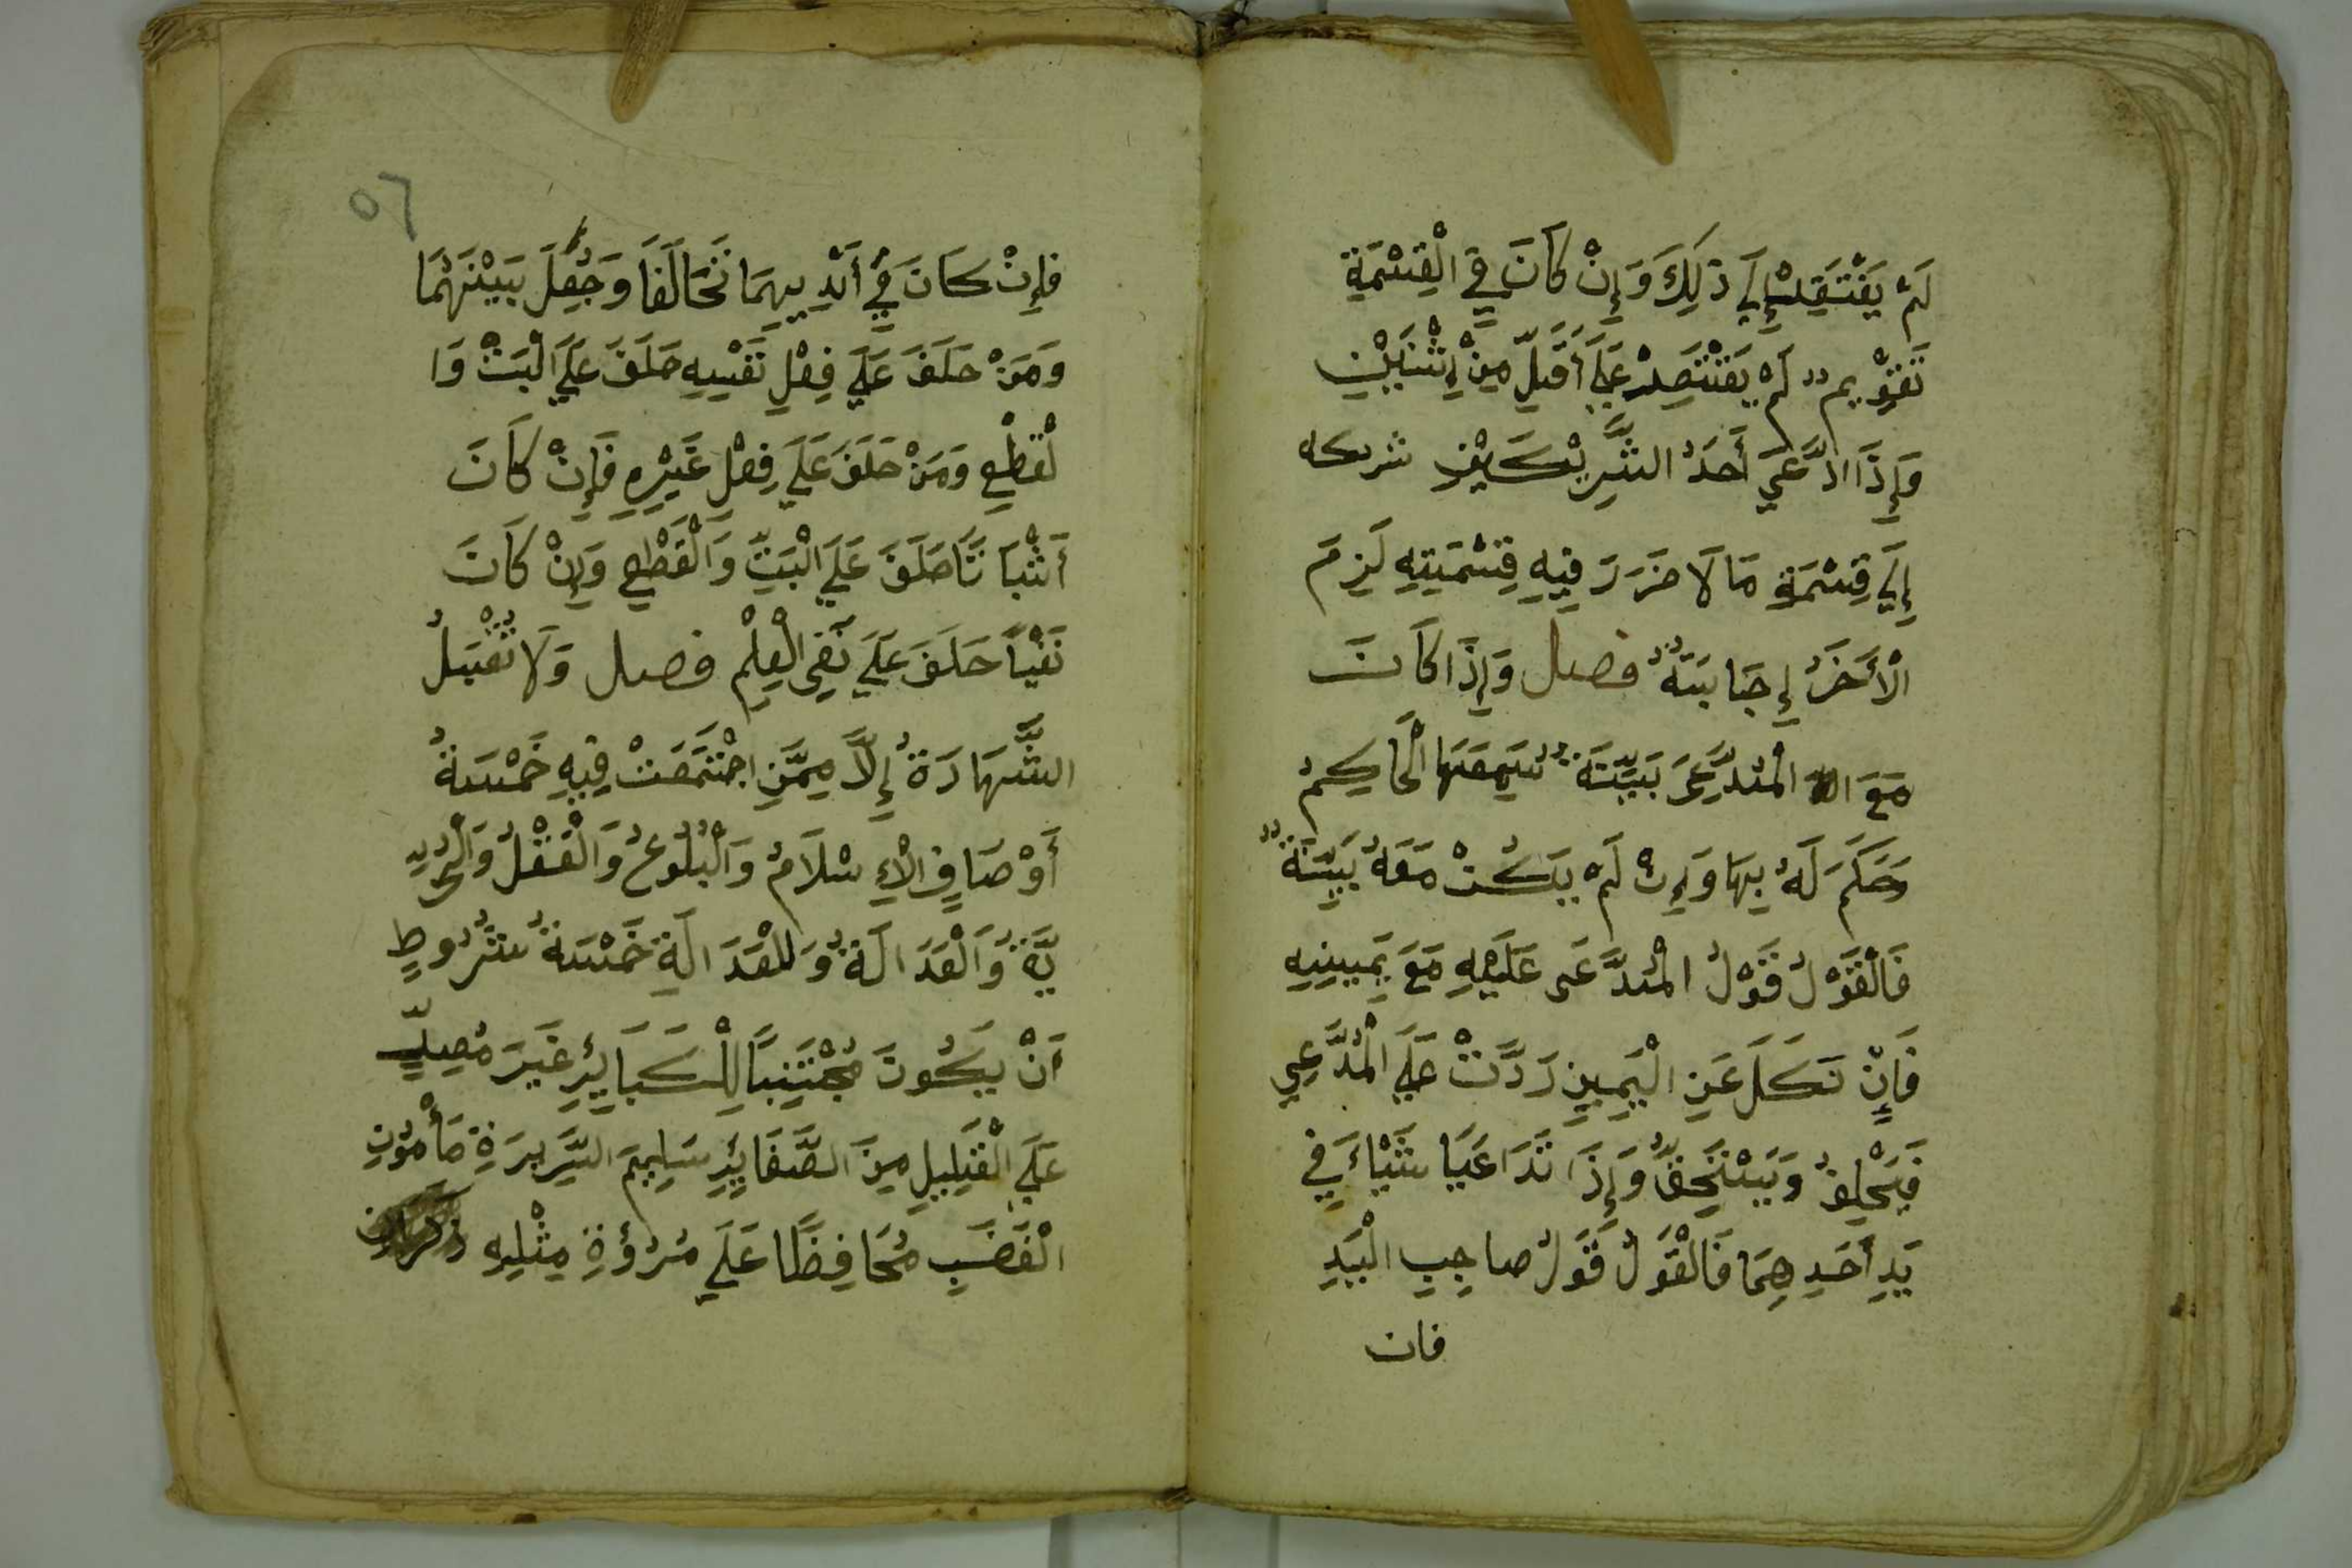 لَمْ يَفْتَقِرْ إِلَي ذَلِكَ وَإِنْ كَانَ فِي الْقِسْمَةِ
تَقْوِيمٌ لَمْ يَقْتَصِرْ عَلَي أَقَلِّ مِنْ إِثْنَيْنِ
وَإِذَا ادَّعَي أَحَدُ الشَّرِيْكَيْنِ شريكه
إِلَي قِسْمَةِ مَا لَا ضَرَرَ فِيهِ قِسْمَتِهِ لَزِمَ
الْأَخَرُ إِجَابَتَهُ فصل وَإِذَا كَانَ
مَعَ الْمُدَّعِيَ بَيِّنَةٌ سَمِعَهَا الْحَاكِمُ
وَحَكَمَ لَهُ بِهَا وَإِنْ لَمْ يَكُنْ مَعَهُ بَيِّنَةٌ
فَالْقَوْلُ قَوْلُ الْمُدَّعَى عَلَيْهِ مَعَ يَمِيْنِهِ
فَإِنْ نَكَلَ عَنِ الْيَمِينِ رَدَّتْ عَلَي الْمُدَّعِي
فَيَحْلِفُ وَيَسْتَحِقُّ وَإِذَا تَدَاعَيَا شَيْاءً فِي
يَدِ أَحَدِهِمَا فَالْقَوْلُ قَوْلُ صاحِبِ الْيَدِ
فان
٥٦
فإِنْ كَانَ فِي أَيْدِيهِمَا تَحَالَفَا وَجُعِلَ بَيْنَهُمَا
وَمَنْ حَلَفَ عَلَي فِعْلِ نَفْسِهِ حَلَفَ عَلَي الْبَتِّ وَا
لْقَطْعِ وَمَنْ حَلَفَ عَلَي فِعْلِ غَيْرِهِ فَإِنْ كَانَ
أَثْبَاتًا حَلَفَ عَلَي الْبَتِّ وَالْقَطْعِ وَإِنْ كَانَ
نَفْيًا حَلَفَ عَلَي نَفِي الْعِلْمِ فصل وَلَا تُقْبَلُ
الشَّهَادَةُ إِلَّا مِمَّنِ اجْتَمَعَتْ فِيهِ خَمْسَةُ
أَوْصَافٍ الْإِسْلَامُ وَالْبُلُوغُ وَالْعَقْلُ وَالْحُرِّ
يَّةُ وَالْعَدَالَةُ وَلِلْعَدَالَةِ خَمْسَةُ شُرُوطٍ
أَنْ يَكُونَ مُجْتَنِبًا لِلْكَبَايِرِ غَيَرَ مُصِرٍّ
عَلَي الْقَلِيلِ مِنَ الصَّغَايِرِ سَلِيمَ السَّرِيرَةِ مَأْمُوْنِ
الْغَضَبِ مُحَافِظًا عَلَي مُرُؤَةِ مِثْلِهِ